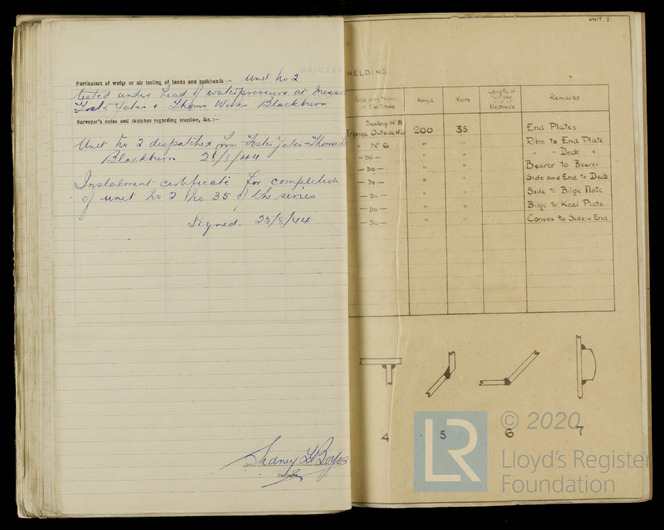 Particulars of water or air testing of tanks and bulkheads :- Unit No 2
tested under head of water pressure at Messr
Foster Yates & Thoms Works Blackburn
Surveyor's notes and sketches regarding erection, &c. :-
Unit No 2 dispatched from Foster Yates Thoms
Blackburn 21/8/44
Instalment certificate for completion
of unit No 2 No 35 of the series
Signed 23/8/44
Sidney
UNIT 1.
WELDING
Electrode Amps Volts Length of Electrode Remarks
Sealing Nº 8
200 35 End Plates
" Nº 6 " " Ribs to End Plate
-Do- " " " " Deck "
-Do- " " Bearer to Bearer
-Do- " " Side and End to Deck
-Do- " " Side to Bilge Plate
-Do- " " Bilge to Keel Plate
-Do- " " Convex to Side & End
4 5 6 7
LR © 2020
Lloyd's Register
Foundation